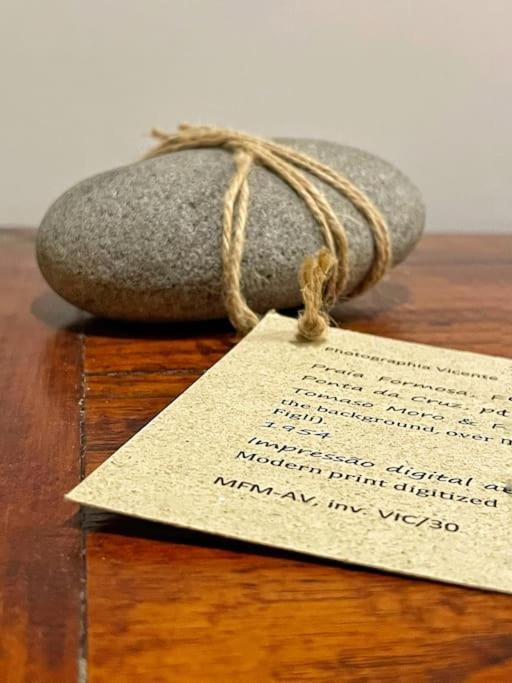 Photographia Vicente
Praia Formosa. F
Ponta da Cruz, pd
Tomaso Moro & F
the background, over m
Figli).
1954
Impressão digital a
Modern print digitized
MFM-AV, inv. VIC/30